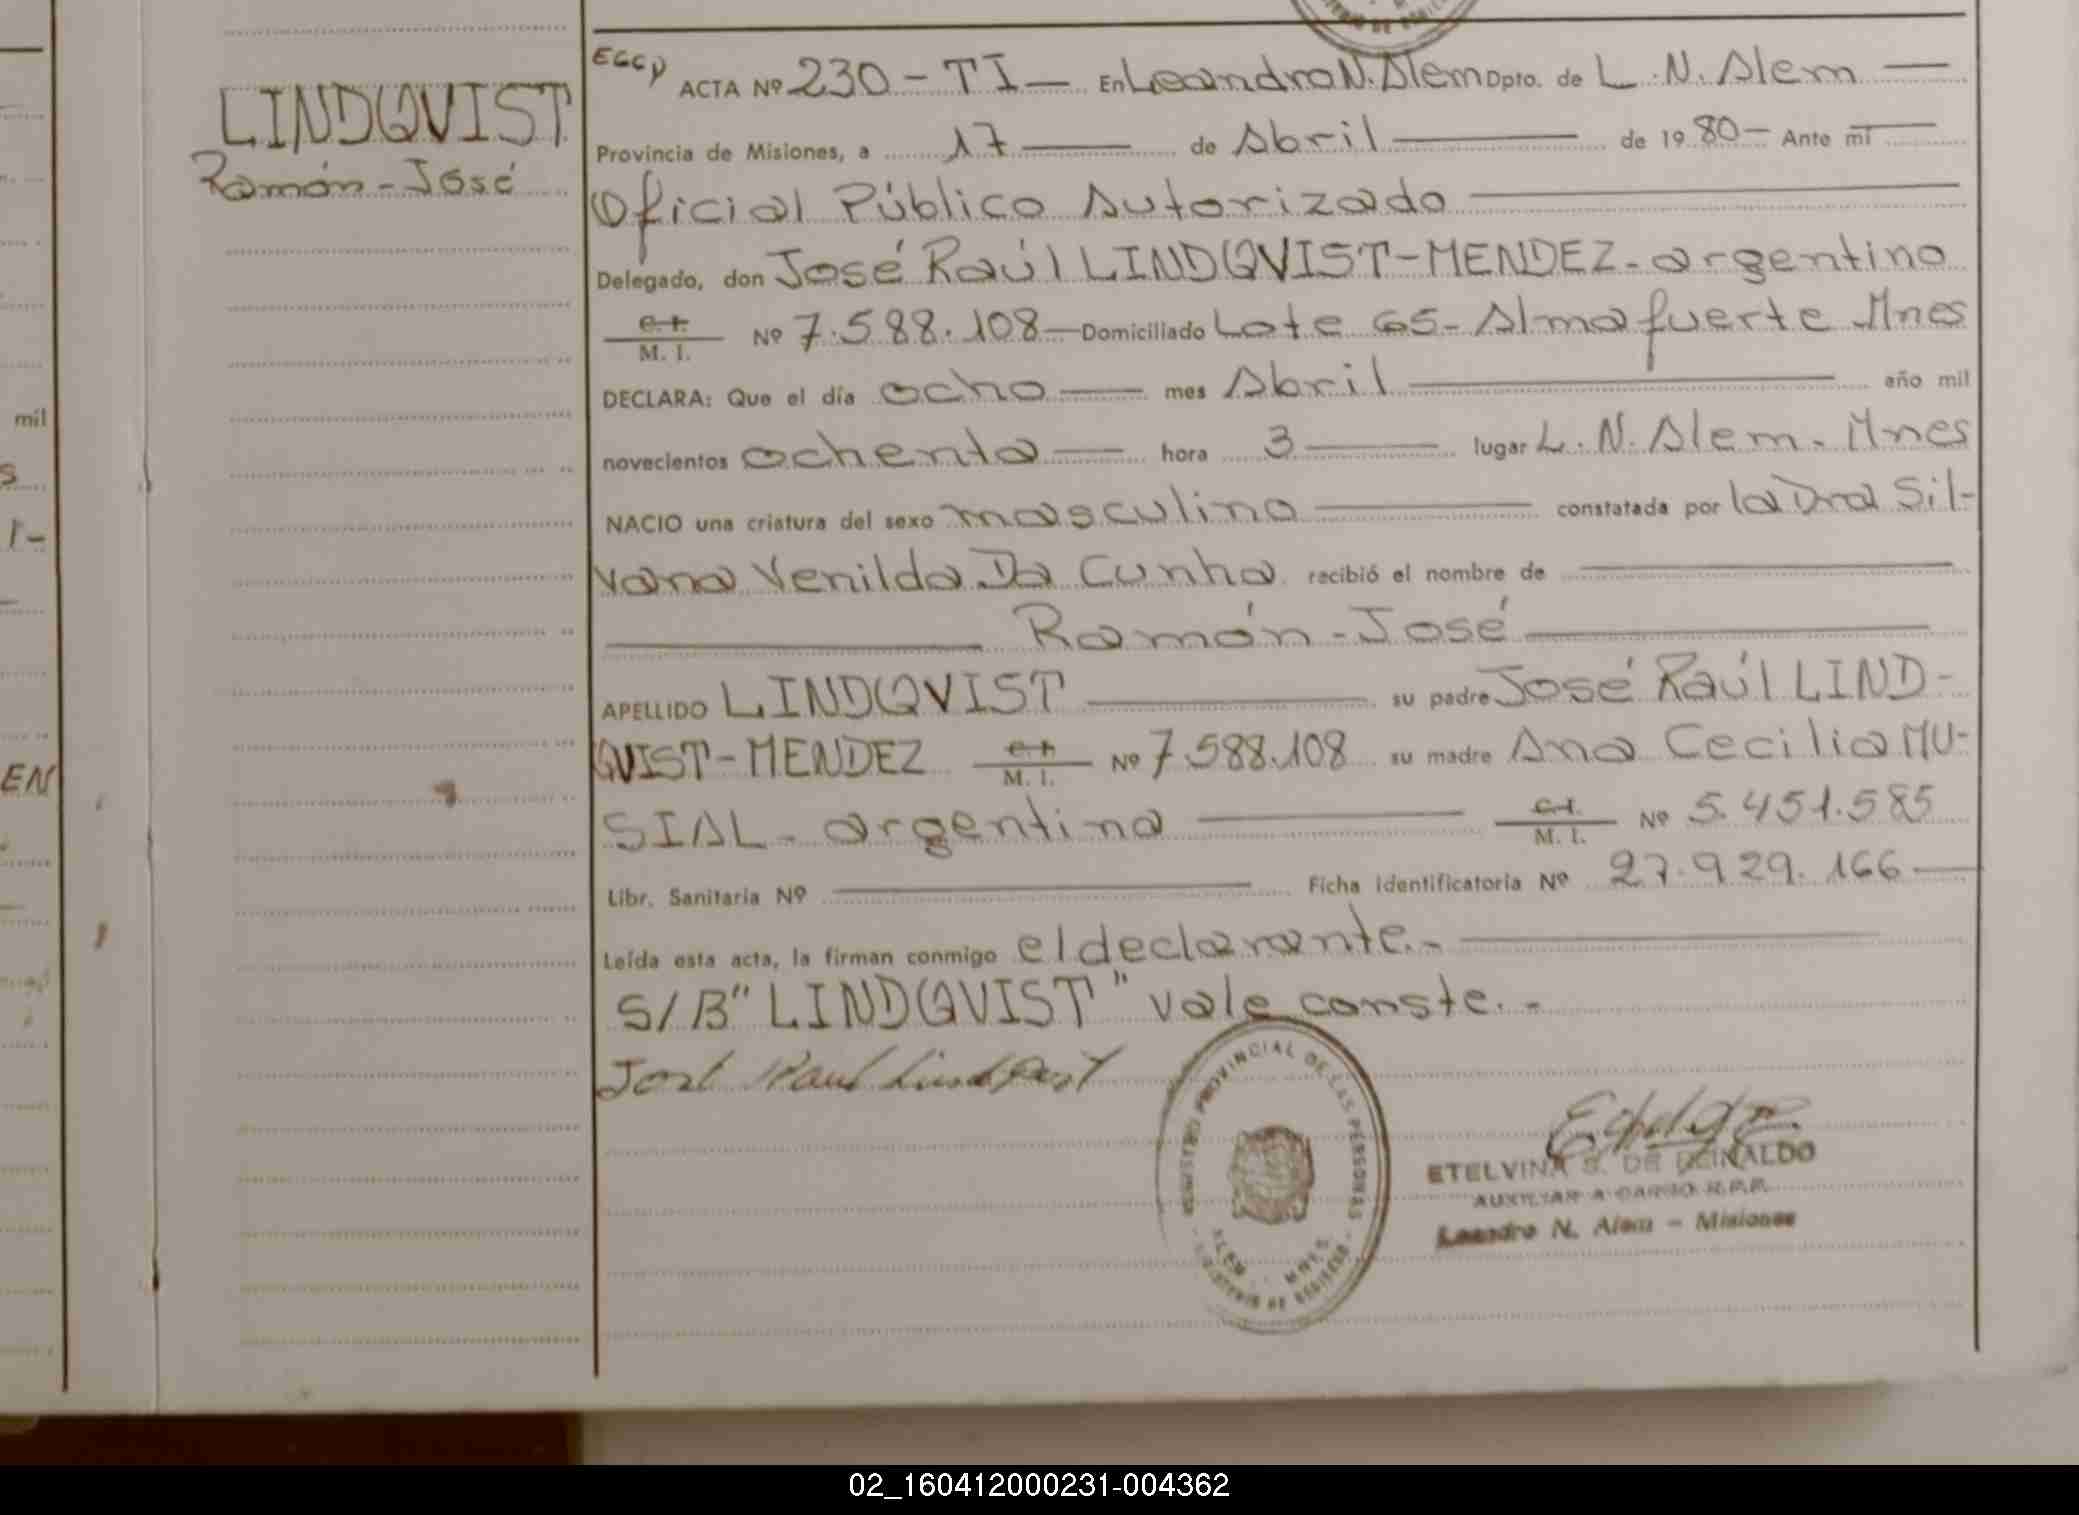 mil
s
r-
EN
LINDQVIST
Ramón-José
ACTA Nº 230-TI- En Leandro N. Alem Dpto. de L.N. Alem
Provincia de Misiones, a 17 de Abril de 1980- Ante mí
Oficial Público Autorizado
Delegado, don José Raúl LINDQVIST-MENDEZ-argentino
C.I.
M. I. Nº 7.588.108-Domiciliado Lote 65-Almafuerte Mnes
DECLARA: Que el día ocho mes Abril año mil
novecientos ochenta hora 3 lugar L.N. Alem-Mnes
NACIO una criatura del sexo masculino constatada por la Dra Sil-
vana Venilda Da Cunha recibió el nombre de
Ramón-José
APELLIDO LINDQVIST su padre José Raúl LIND-
QVIST-MENDEZ C.I.
M. I. Nº 7.588.108 su madre Ana Cecilia MU-
SIAL-argentina C.I.
M. I. Nº 5.451.585
Libr. Sanitaria Nº Ficha Identificatoria Nº 27.929.166
Leída esta acta, la firman conmigo el declarante.-
S/B "LINDQVIST" vale conste.-
José Raul Lindqvist
REGISTRO PROVINCIAL DE LAS PERSONAS
ALEM MNES.
MINISTERIO DE GOBIERNO
ETELVINA S. DE REINALDO
AUXILIAR A CARGO R.P.P.
Leandro N. Alem - Misiones
02_160412000231-004362